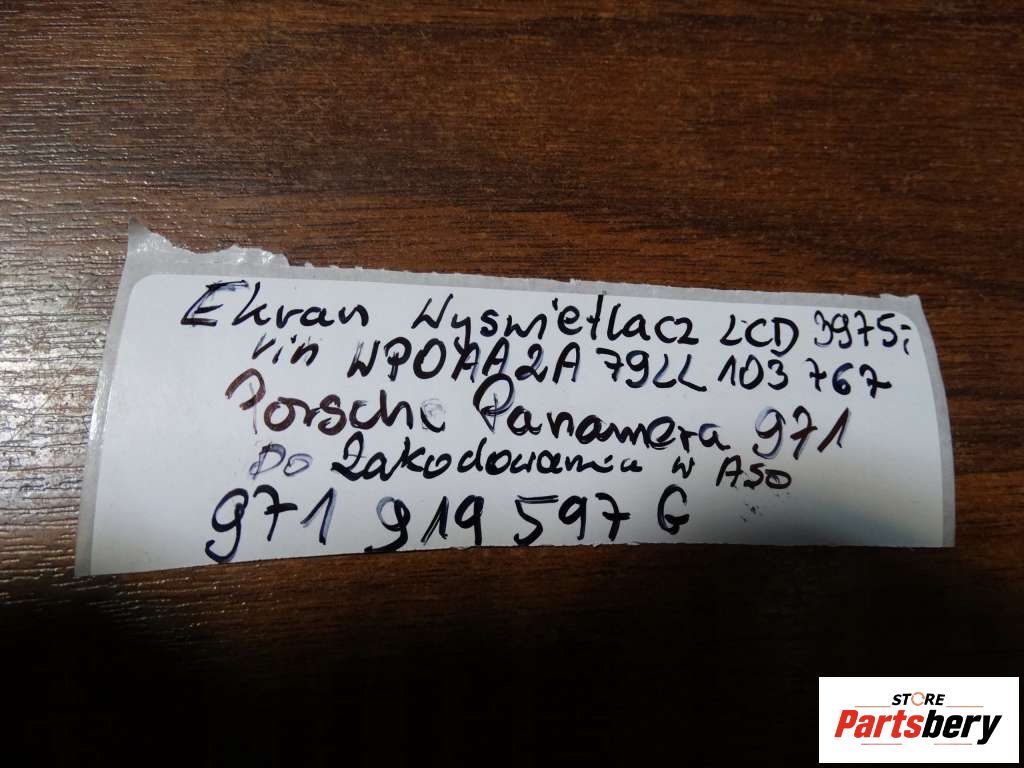 Ekran Wyswietlacz LCD 3975;
vin WP0AA2A79LL103767
Porsche Panamera 971
Do Zakodowania w ASO
971 919 597 G
STORE
Partsbery